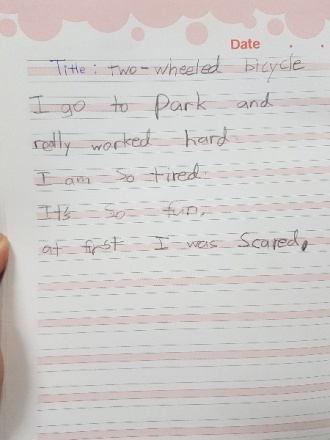 Date . .
Title: Two-wheeled bicycle
I go to Park and
really worked hard
I am so tired
It's so fun,
at first I was Scared.